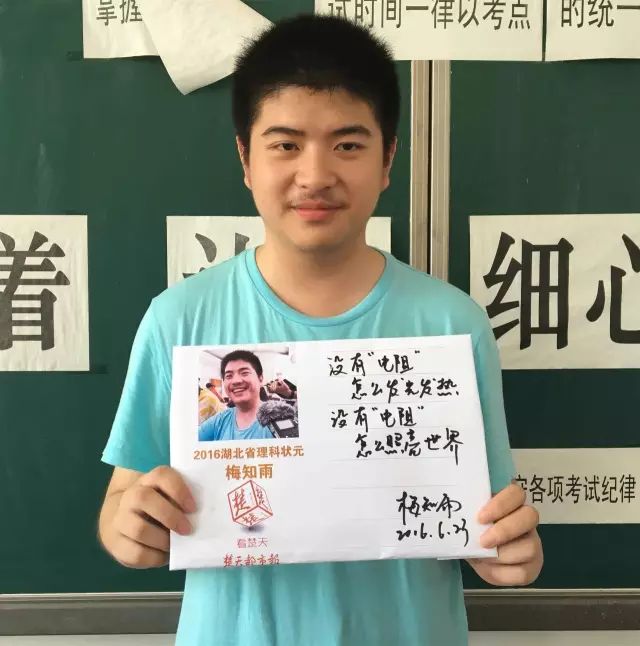 掌握
试时间一律以考点
的统一
着
细心
没有“电阻”
怎么发光发热,
没有“电阻”
怎么照亮世界
2016湖北省理科状元
梅知雨
看楚天
楚天都市报
梅知雨
2016.6.23
各项考试纪律